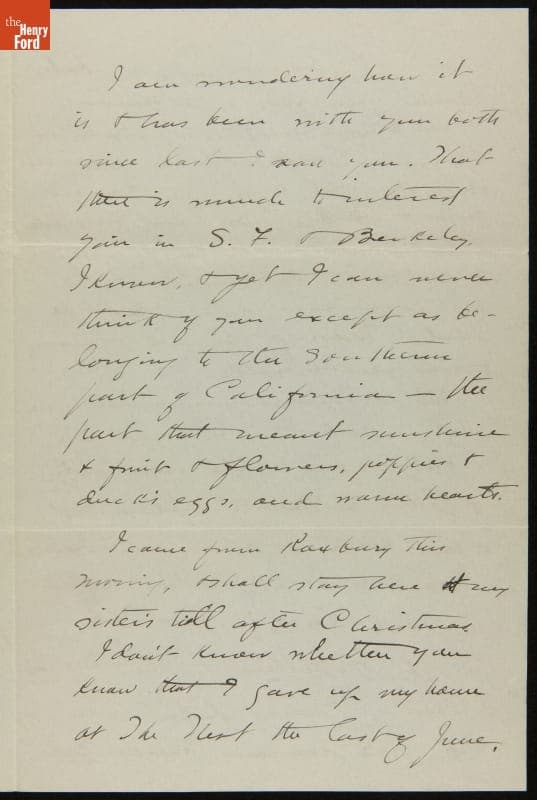 the
Henry
Ford
I am wondering how it
is & has been with you both
since last I saw you. That
there is much to interest
you in S. F. & Berkeley,
I know, & yet I can never
think of you except as be-
longing to the Southern
part of California — the
part that meant sunshine
& fruit & flowers, poppies &
duck's eggs, and warm hearts.
I came from Roxbury this
morning, & shall stay here at my
sister's till after Christmas.
I don't know whether you
know that I gave up my home
at The Nest the last of June.